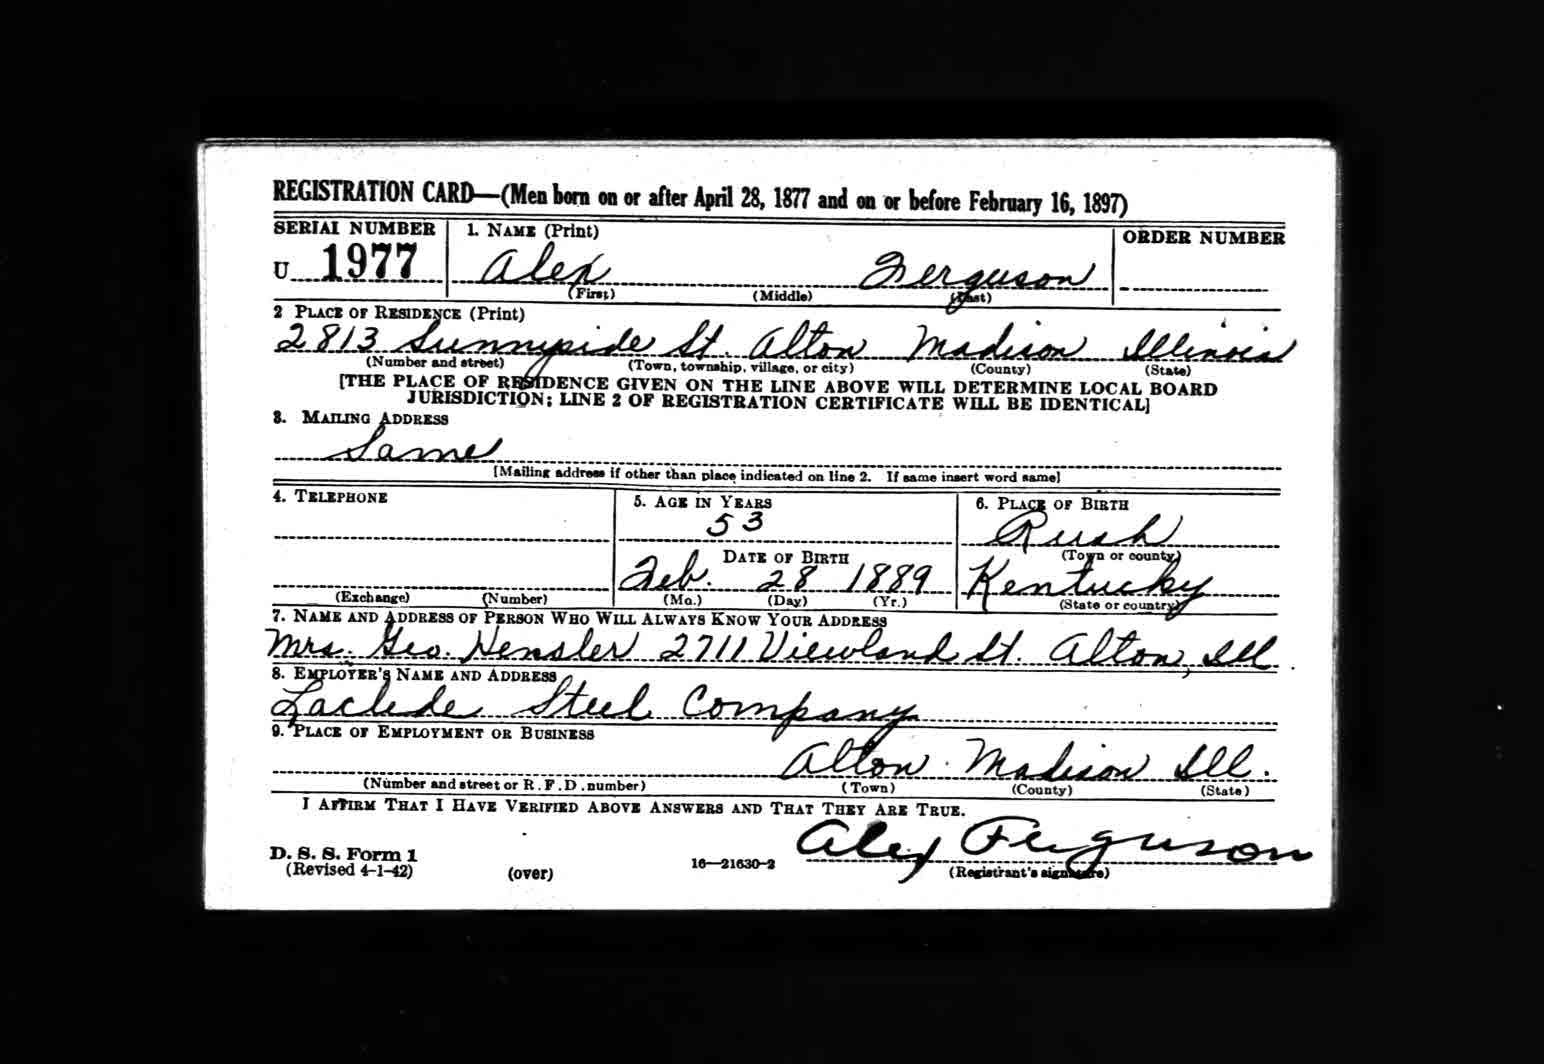 REGISTRATION CARD—(Men born on or after April 28, 1877 and on or before February 16, 1897)
SERIAL NUMBER 1. NAME (Print) ORDER NUMBER
U 1977 Alex Ferguson
(First) (Middle) (Last)
2 PLACE OF RESIDENCE (Print)
2813 Sunnyside St. Alton Madison Illinois
(Number and street) (Town, township, village, or city) (County) (State)
[THE PLACE OF RESIDENCE GIVEN ON THE LINE ABOVE WILL DETERMINE LOCAL BOARD
JURISDICTION; LINE 2 OF REGISTRATION CERTIFICATE WILL BE IDENTICAL]
3. MAILING ADDRESS
Same
[Mailing address if other than place indicated on line 2. If same insert word same]
4. TELEPHONE 5. AGE IN YEARS 6. PLACE OF BIRTH
53 Rush
DATE OF BIRTH (Town or county)
Feb. 28 1889 Kentucky
(Exchange) (Number) (Mo.) (Day) (Yr.) (State or country)
7. NAME AND ADDRESS OF PERSON WHO WILL ALWAYS KNOW YOUR ADDRESS
Mrs. Geo. Hensler 2711 Viewland St. Alton, Ill.
8. EMPLOYER'S NAME AND ADDRESS
Laclede Steel Company
9. PLACE OF EMPLOYMENT OR BUSINESS
Alton Madison Ill.
(Number and street or R. F. D. number) (Town) (County) (State)
I AFFIRM THAT I HAVE VERIFIED ABOVE ANSWERS AND THAT THEY ARE TRUE.
Alex Ferguson
D. S. S. Form 1
(Revised 4-1-42) (over) 16—21630-2 (Registrant's signature)